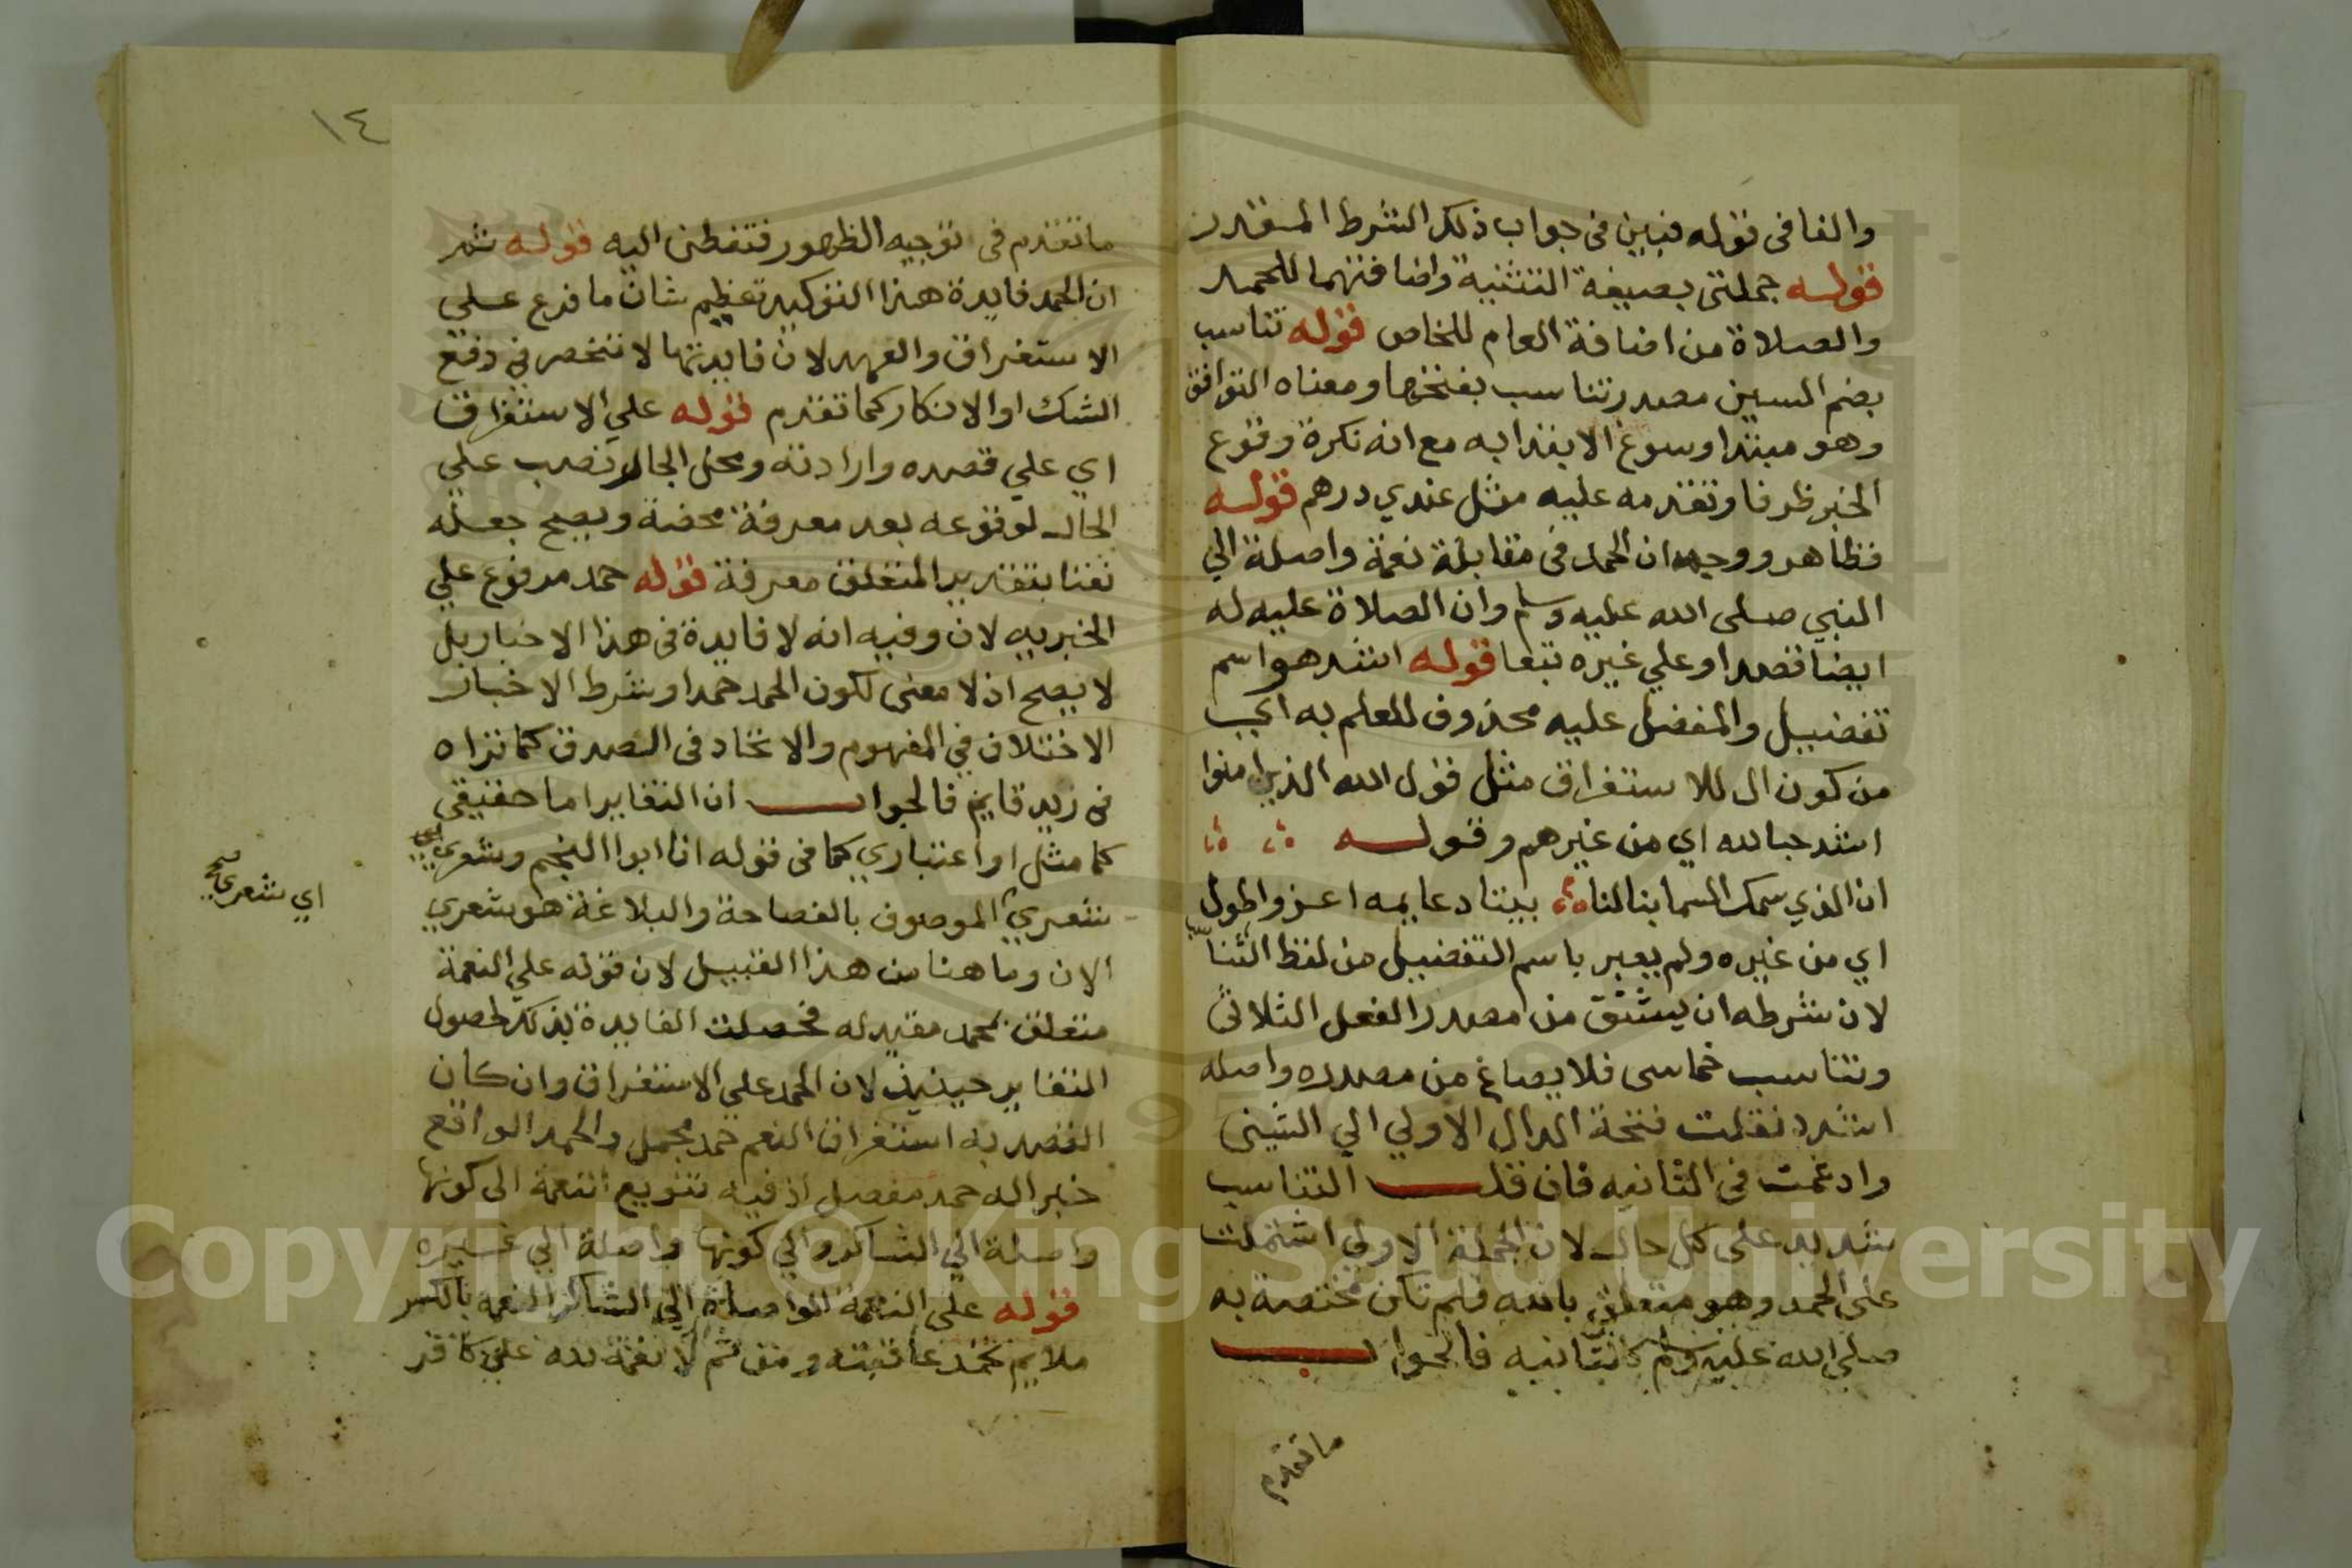 والفا في قوله فبين في جواب ذلك الشرط المقدر
قوله جملتي بصيغة التثنية واضافتهما للحمد
والصلاة من اضافة العام للخاص قوله تناسب
بضم السين مصدر تناسب بفتحها ومعناه التوافق
وهو مبتدا وسوغ الابتدا به مع انه نكرة وقوع
الخبر ظرفا وتقدمه عليه مثل عندي درهم قوله
فظاهر ووجهه ان الحمد في مقابلة نعمة واصلة الي
النبي صلى الله عليه وسلم وان الصلاة عليه له
ايضا قصدا وعلي غيره تبعا قوله اشد هو اسم
تفضيل والمفضل عليه محذوف للعلم به اي
من كون ال للاستغراق مثل قول الله الذين امنوا
اشد حبا لله اي من غيرهم وقوله
ان الذي سمك السما بنا لنا بيتا دعايمه اعز واطول
اي من غيره ولم يعبر باسم التفضيل من لفظ التناسب
لان شرطه ان يشتق من مصدر الفعل الثلاثي
وتناسب خماسي فلا يصاغ من مصدره واصله
اشدد نقلت فتحة الدال الاولي الي الشين
وادغمت في الثانيه فان قلت التناسب
شديد على كل حال لان الجملة الاولي اشتملت
على الحمد وهو متعلق بالله فلم تكن مختصة به
صلي الله عليه وسلم كالثانيه فالجواب
ما تقدم
١٤
ما تقدم في توجيه الظهور فتفطن اليه قوله ثم
ان الحمد فايدة هذا التوكيد تعظيم شان ما فرع علي
الاستغراق والعهد لان فايدتها لا تنحصر في دفع
الشك او الانكار كما تقدم قوله علي الاستغراق
اي علي قصده وارادته ومحل الجار نصب علي
الحال لوقوعه بعد معرفة محضة ويصح جعله
نعتا بتقدير المتعلق معرفة قوله حمد مرفوع علي
الخبريه لان وفيه انه لا فايدة في هذا الاخبار بل
لا يصح اذ لا معنى لكون الحمد حمدا وشرط الاخبار
الاختلاف في المفهوم والاتحاد في الصدق كما تراه
في زيد قايم فالجواب ان التغاير اما حقيقي
كما مثل او اعتباري كما في قوله انا ابوا النجم وشعري
شعري الموصوف بالفصاحة والبلاغة هو شعري
اي شعري صح
الان وما هنا من هذا القبيل لان قوله علي النعمة
متعلق بحمد مقيد له فحصلت الفايدة بذلك لحصول
التغاير حينيذ لان الحمد علي الاستغراق وان كان
القصد به استغراق النعم حمد مجمل والحمد الواقع
خبرا له حمد مفصل اذ فيه تنويع النعمة الى كونها
واصلة الي الشاكر والي كونها واصلة الي غيره
قوله على النعمة الواصلة الي الشاكر النعمة بالكسر
ملايم تحمد عاقبته ومن ثم لا نعمة لله علي كافر
Copyright © King Saud University